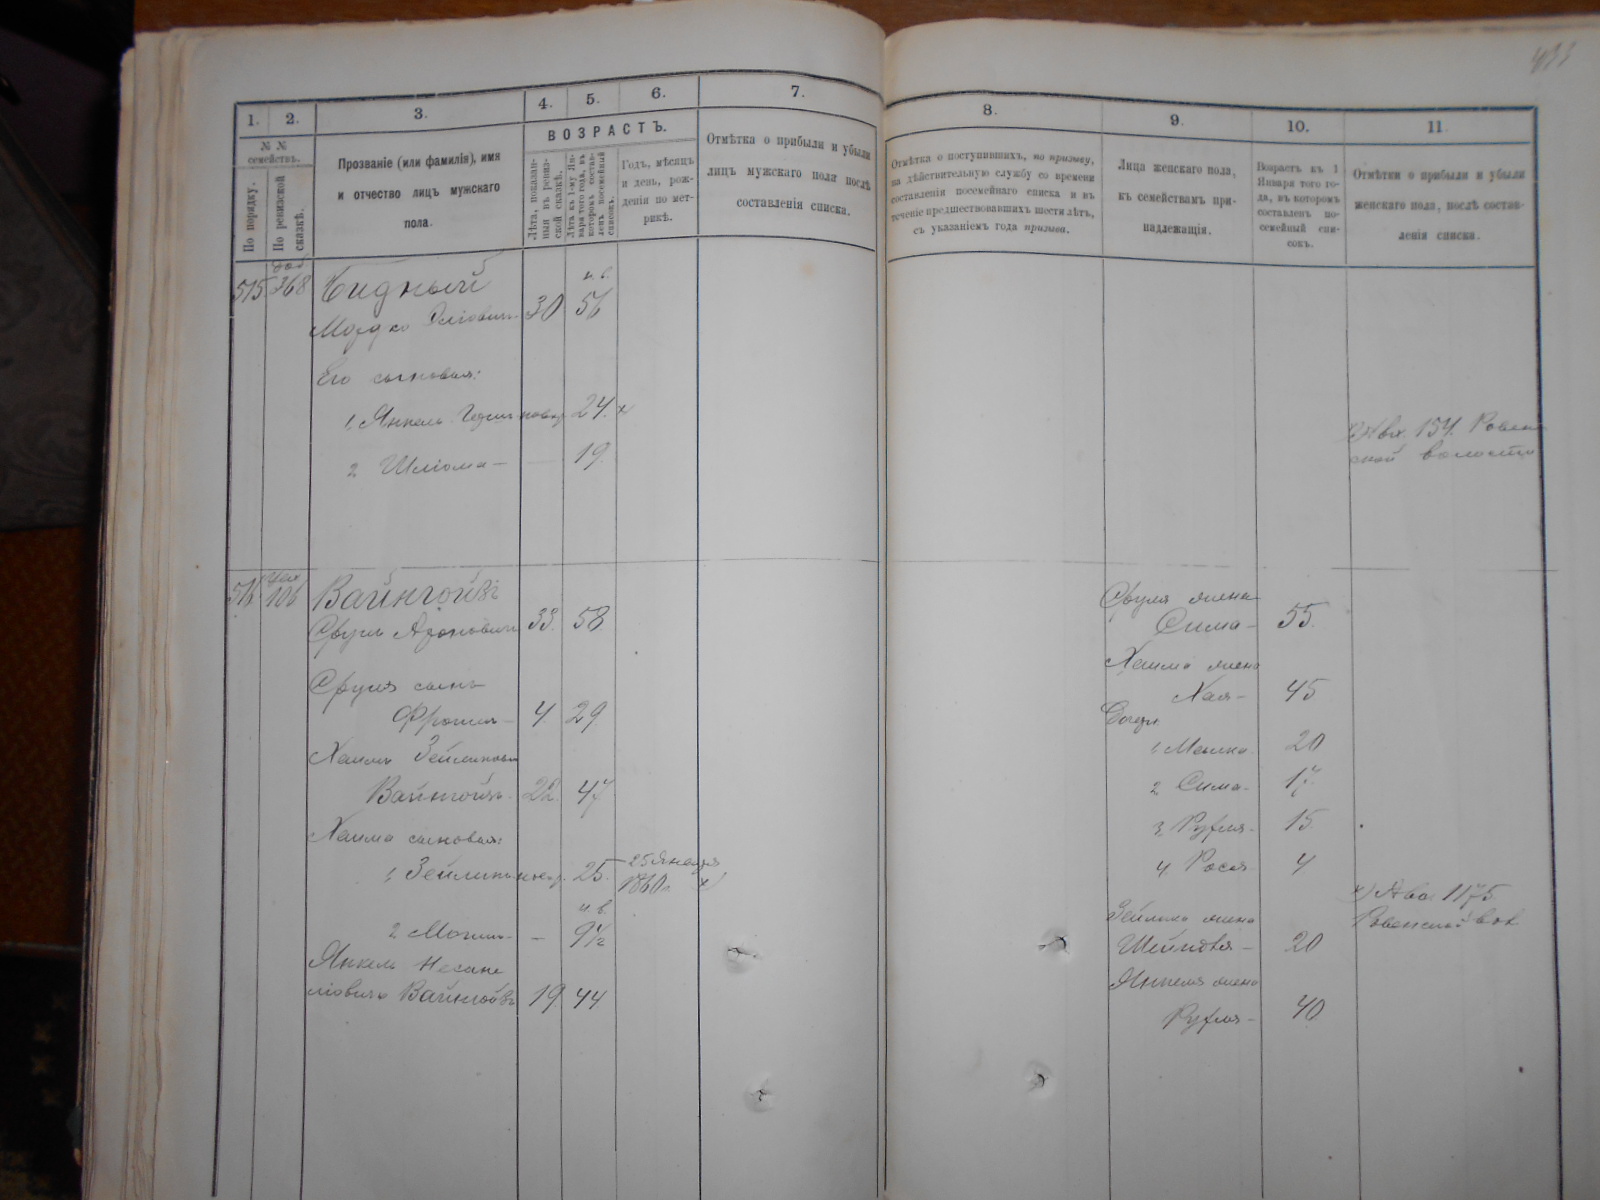 1.
2.
3.
4.
5.
6.
7.
8.
9.
10.
11
№ №
семействъ.
По порядку.
По ревизской
сказкѣ.
Прозваніе (или фамилія), имя
и отчество лицъ мужскаго
пола.
ВОЗРАСТЪ.
Лѣта, показан-
ныя въ ревиз-
ской сказкѣ.
Лѣта къ 1-му Ян-
варя того года, въ
которомъ состав-
ленъ посемейный
списокъ.
Годъ, мѣсяцъ
и день, рож-
денія по мет-
рикѣ.
Отмѣтка о прибыли и убыли
лицъ мужскаго пола послѣ
составленія списка.
Отмѣтка о поступившихъ, по призыву,
на дѣйствительную службу со времени
составленія посемейнаго списка и въ
теченіе предшествовавшихъ шести лѣтъ,
съ указаніемъ года призыва.
Лица женскаго пола,
къ семействамъ при-
надлежащія.
Возрастъ къ 1
Января того го-
да, въ которомъ
составленъ по-
семейный спи-
сокъ.
Отмѣтки о прибыли и убыли
женскаго пола, послѣ состав-
ленія списка.
515 368 Бидный
Мордко 30 56
Его сыновья:
1 Янкель 24 х
2 Шліома — 19
154. Ровен
ской волости
516 106 Вайнгойзъ
Сруль Ароновичъ 33 58
Сруля жена
Сима — 55
Сруля сынъ
Фроимъ — 4 29
Хаима жена
Хая — 45
Хаимъ Зейликовъ
Вайнгойзъ 22 47
1 Малка 20
2 Сима 17
Хаима сыновья:
3 Рухля 15
1 Зейликъ 25 25 Января
1860 х)
4 Рося 4
х) 1175
2 — 9½
Зейлика жена
Шейндля — 20
Янкель Несане
ліовичъ Вайнгойзъ 19 44
Янкеля жена
Рухля — 40